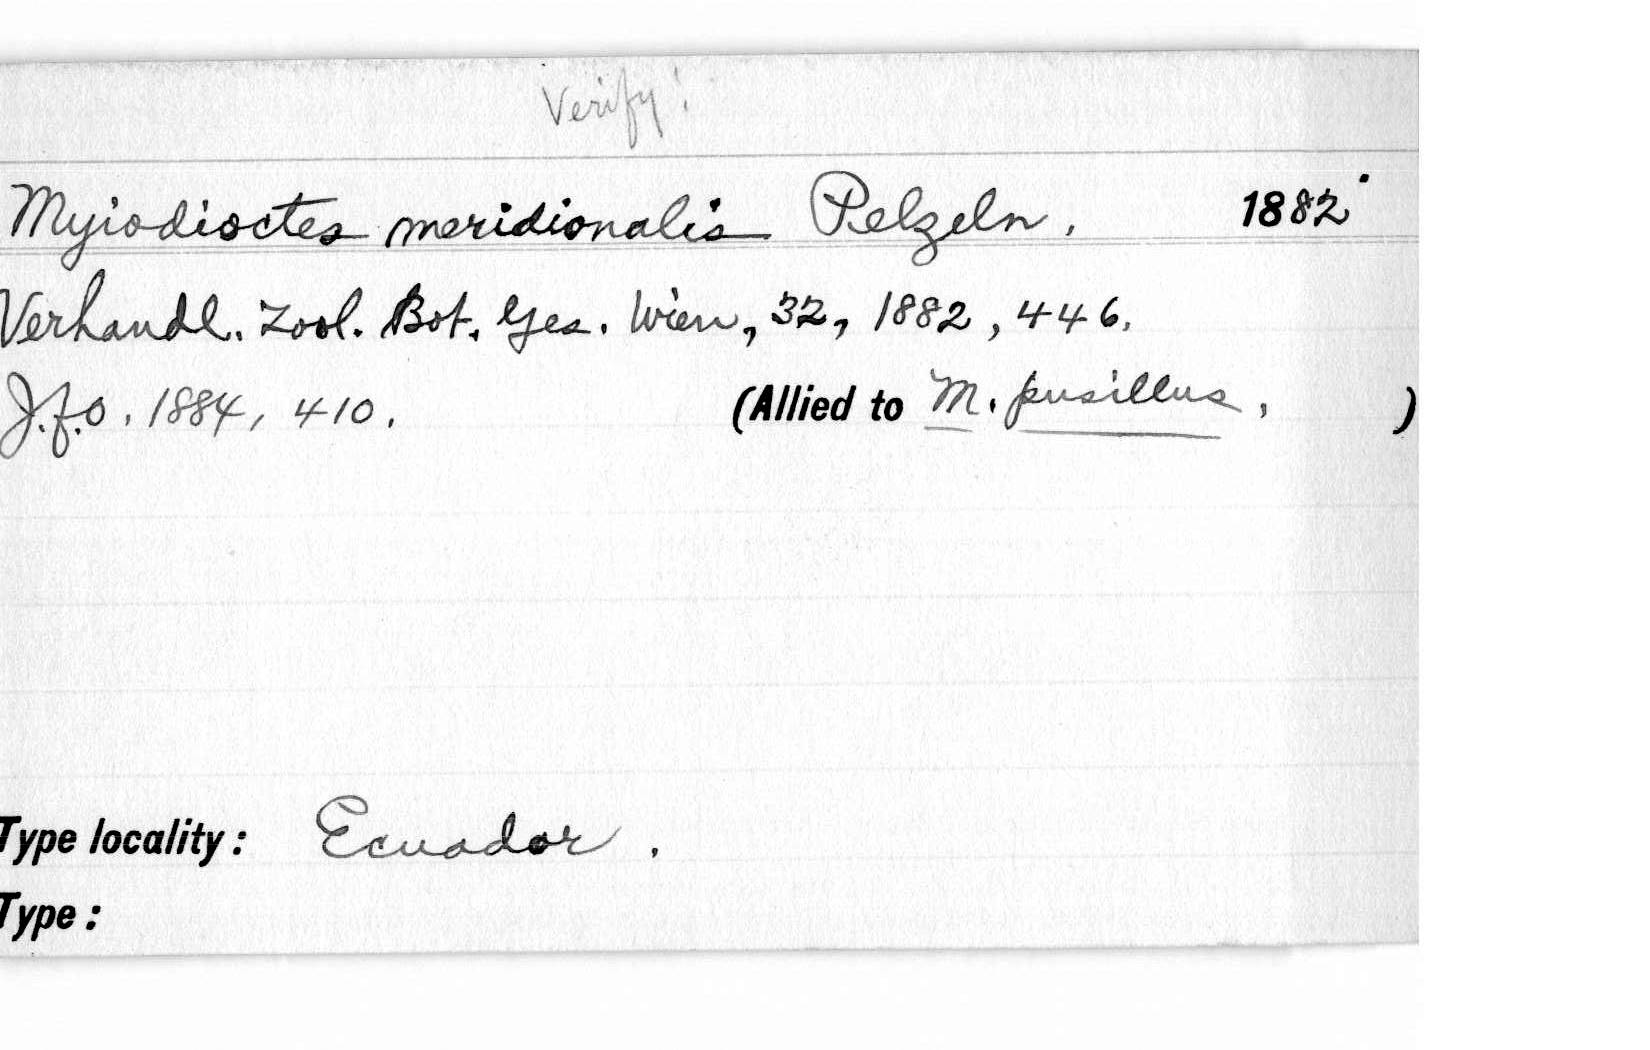 Verify!
Myiodioctes meridionalis Pelzeln. 1882
Verhandl. Zool. Bot. Ges. Wien, 32, 1882, 446.
J.f.O. 1884, 410. (Allied to M. pusillus. )
Type locality: Ecuador.
Type: